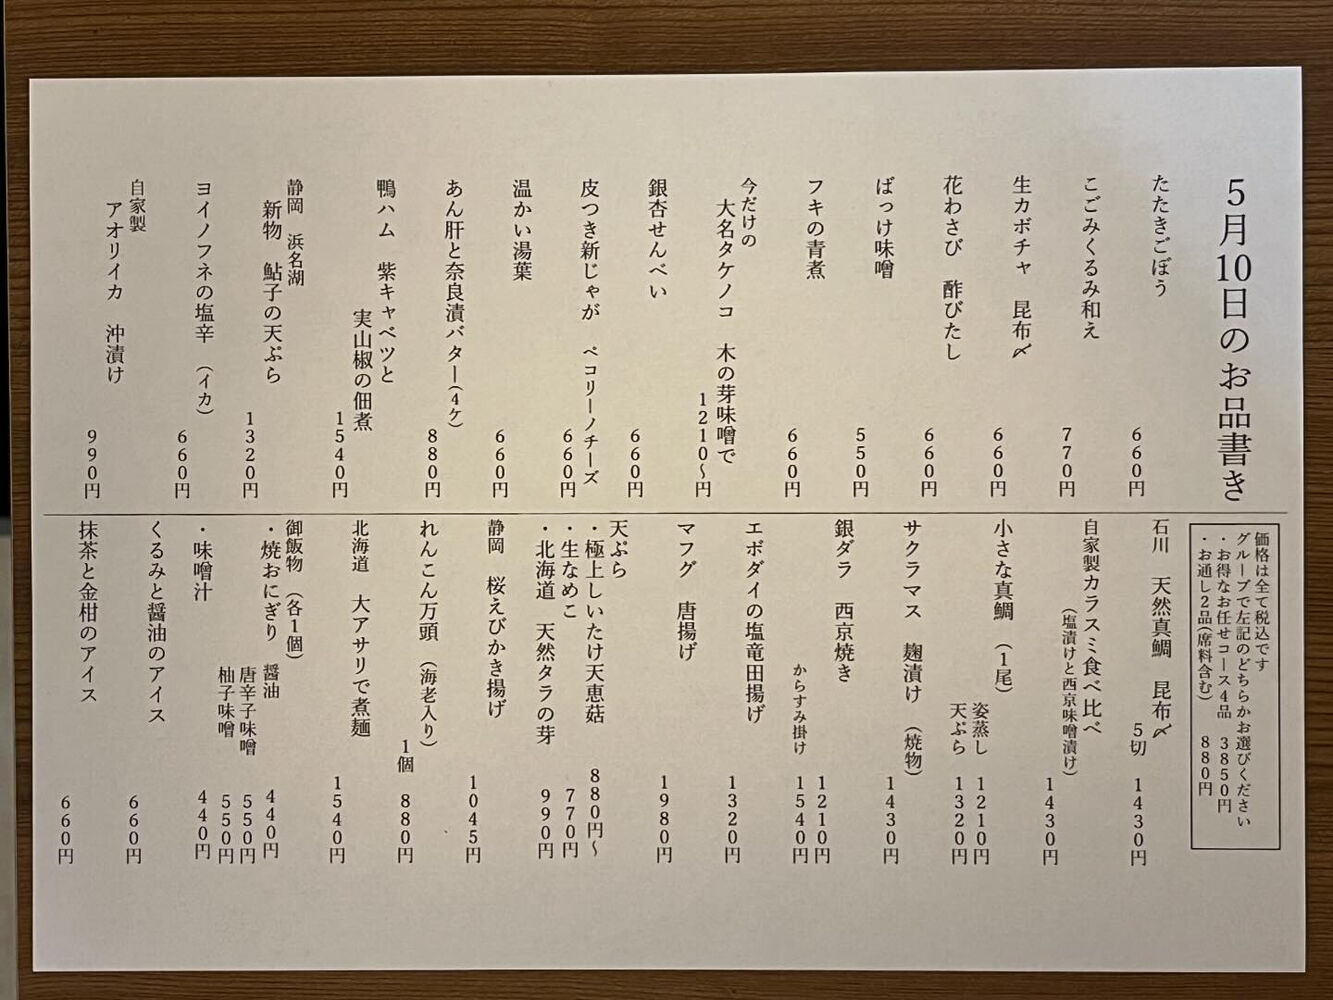 5月10日のお品書き
たたきごぼう
660円
こごみくるみ和え
770円
生カボチャ 昆布〆
660円
花わさび 酢びたし
660円
ばっけ味噌
550円
フキの青煮
660円
今だけの
大名タケノコ 木の芽味噌で
1210〜円
銀杏せんべい
660円
皮つき新じゃが ペコリーノチーズ
660円
温かい湯葉
660円
あん肝と奈良漬バター(4ケ)
880円
鴨ハム 紫キャベツと
実山椒の佃煮
1540円
静岡 浜名湖
新物 鮎子の天ぷら
1320円
ヨイノフネの塩辛 (イカ)
660円
自家製
アオリイカ 沖漬け
990円
価格は全て税込です
グループで左記のどちらかお選びください
・お得なお任せコース4品 3850円
・お通し2品(席料含む) 880円
石川 天然真鯛 昆布〆
5切 1430円
自家製カラスミ食べ比べ
(塩漬けと西京味噌漬け)
1430円
小さな真鯛 (1尾)
姿蒸し 1210円
天ぷら 1320円
サクラマス 麹漬け (焼物)
1430円
銀ダラ 西京焼き
1210円
からすみ掛け 1540円
エボダイの塩竜田揚げ
1320円
マフグ 唐揚げ
1980円
天ぷら
・極上しいたけ天恵菇 880円〜
・生なめこ 770円
・北海道 天然タラの芽 990円
静岡 桜えびかき揚げ
1045円
れんこん万頭 (海老入り)
1個 880円
北海道 大アサリで煮麺
1540円
御飯物 (各1個)
・焼おにぎり 醤油 440円
唐辛子味噌 550円
柚子味噌 550円
・味噌汁 440円
くるみと醤油のアイス
660円
抹茶と金柑のアイス
660円